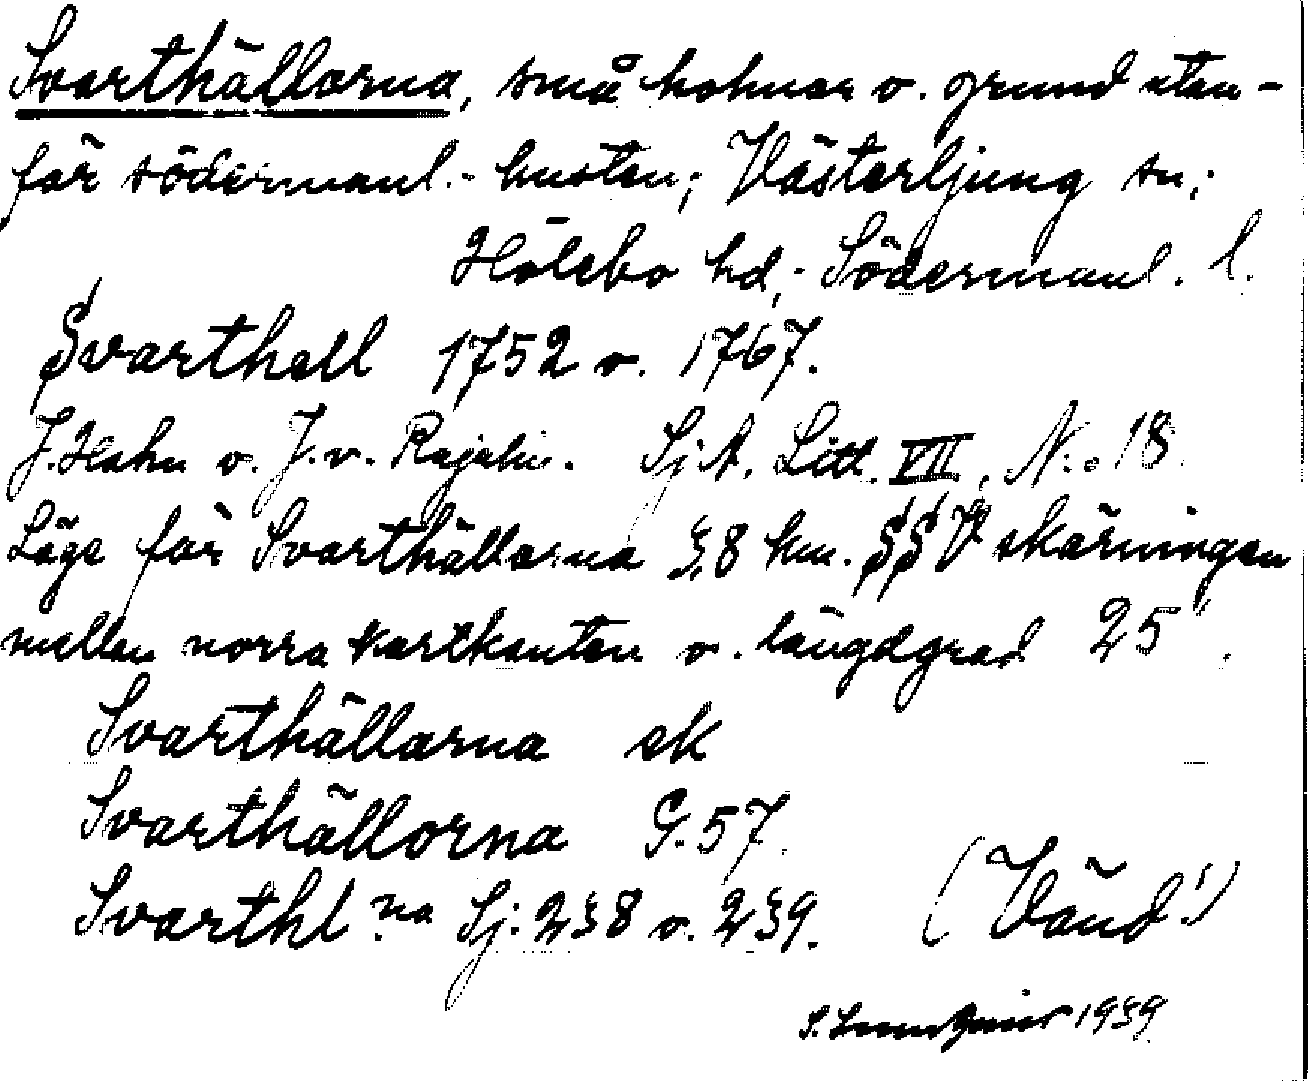 Svarthällorna, små holmar o. grund utan-
för södermanl.- kusten; Västerljung sn;
Hölebo hd; Södermanl. l.
Svarthall 1752 o. 1767.
J. Hahn o. J. v. Rajalin. Sj. A. Litt. VII, N:o 18.
Läge för Svarthällorna 3,8 km. SSV skärningen
mellan norra kartkanten o. längdgrad 25'.
Svarthällarna ek
Svarthällorna G. 57.
Svarthl:na Sj. 238 o. 239. (Vänd!)
1939